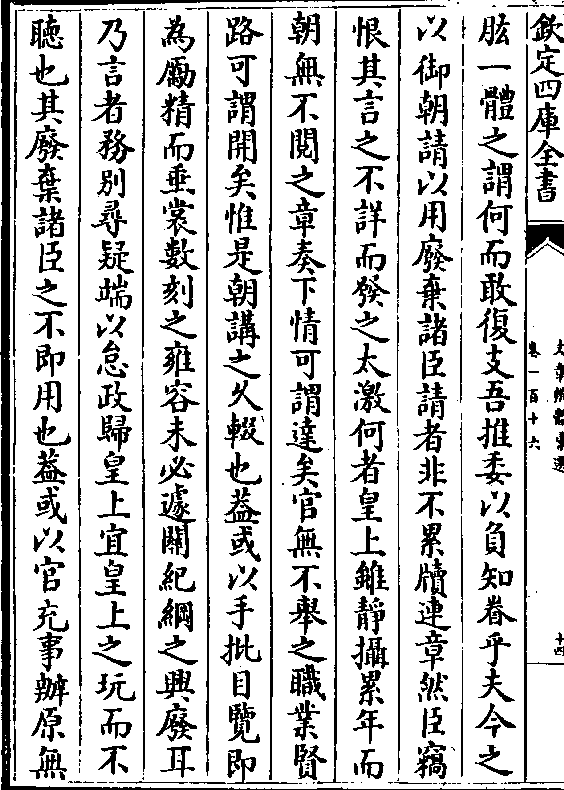 欽定四庫全書
卷一百十六
十四
肱一體之謂何而敢復支吾推委以負知眷乎夫今之
以御朝請以用廢棄諸臣請者非不累牘連章然臣竊
恨其言之不詳而發之太激何者皇上雖靜攝累年而
朝無不閱之章奏下情可謂達矣官無不舉之職業賢
路可謂開矣惟是朝講之乆輟也葢或以手批目覽即
為勵精而垂裳數刻之雍容未必遽關紀綱之興廢耳
乃言者務别尋疑端以怠政歸皇上宜皇上之玩而不
聽也其廢棄諸臣之不即用也葢或以官充事辦原無